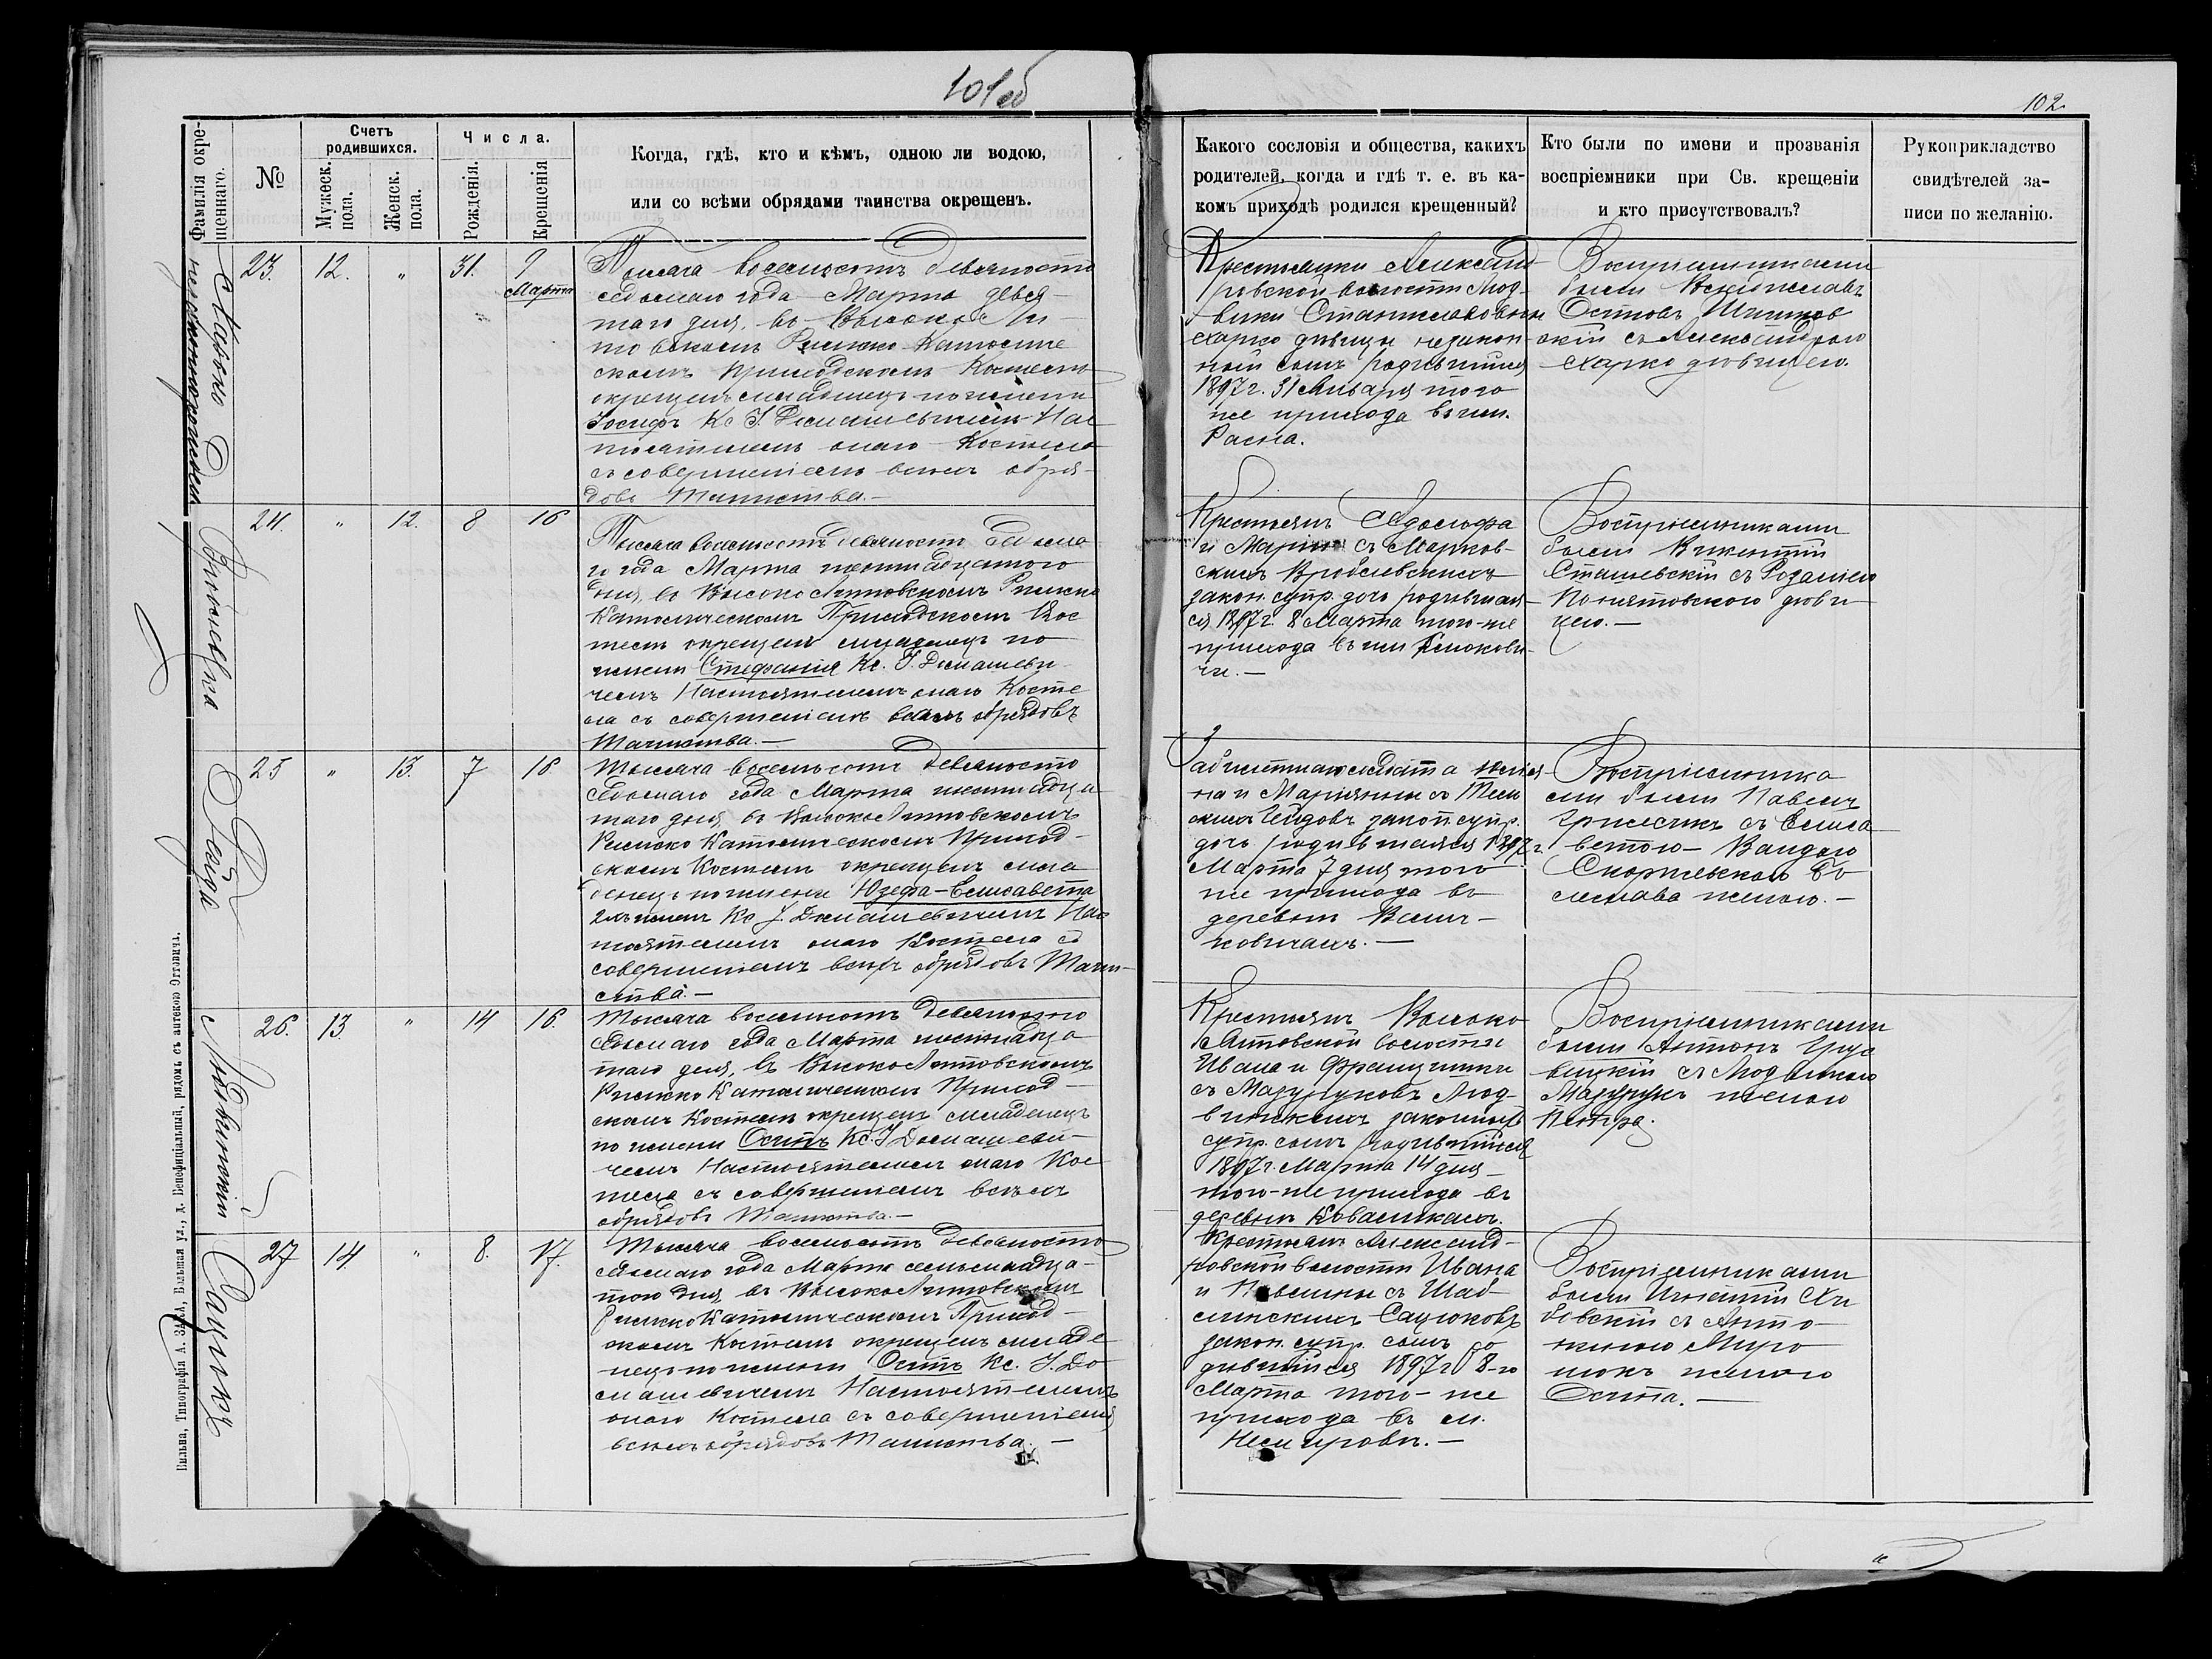 101об
102.
Фамилія окре-
щеннаго.
№
Счетъ
родившихся.
Мужеск.
пола.
Женск.
пола.
Числа.
Рожденія.
Крещенія
Когда, гдѣ, кто и кѣмъ, одною ли водою,
или со всѣми обрядами таинства окрещенъ.
Какого сословія и общества, какихъ
родителей, когда и гдѣ т. е. въ ка-
комъ приходѣ родился крещенный?
Кто были по имени и прозванія
воспріемники при Св. крещеніи
и кто присутствовалъ?
Рукоприкладство
свидѣтелей за-
писи по желанію.
23. 12. " 31. 9
Марта
Тысяча восемьсотъ девяносто
седьмаго года Марта девя-
таго дня, въ Высоко Ли-
товскомъ Римско Католиче
скомъ Приходскомъ Костелѣ
окрещенъ младенецъ по имени
Іосифъ Кс І. Домашевичемъ Нас
тоятелемъ онаго Костела
съ совершеніемъ всѣхъ обря-
довъ Таинства.-
Крестьянки Александ-
ровской волости Люд-
вики Станиславовны
дѣвицы незакон-
ный сынъ родившійся
1897 г. 31 Января того
же прихода въ им.
Расна.
Воспріемниками
были
Осиповъ
скій съ Александрою
дѣвицею.
24. " 12. 8 16
Тысяча восемьсотъ девяносто седьма
го года Марта шестнадцатаго
дня, въ Высоко Литовскомъ Римско
Католическомъ Приходскомъ Кос
телѣ окрещенъ младенецъ по
имени Стефанія Кс. І. Домашеви
чемъ Настоятелемъ онаго Косте
ла съ совершеніемъ всѣхъ обрядовъ
Таинства.-
Крестьянъ Адольфа
и Маріи съ Марков-
скихъ Врублевскихъ
закон. супр. дочь родившая-
ся 1897 г. 8 Марта того-же
прихода въ им
чи.-
Воспріемниками
были Викентій
Сташевскій съ Розаліею
Понятовскою дѣви
цею.-
25 " 13. 7 16
Тысяча восемьсотъ девяносто
седьмаго года Марта шестнадца
таго дня, въ Высоко Литовскомъ
Римско Католическомъ Приход-
скомъ Костелѣ окрещенъ мла
денецъ по имени Юзефа-Елисавета
2хъ именъ Кс І. Домашевичемъ Нас
тоятелемъ онаго Костела съ
совершеніемъ всѣхъ обрядовъ Таин-
ства.-
на и Маріянны съ
закон. супр.
дочь родившаяся 1897 г.
Марта 7 дня того
же прихода въ
деревнѣ Велич-
ковичахъ.-
Воспріемника
ми были Павелъ
съ Елиса
ветою- Вандою
Бо
леслава женою.-
26. 13. " 14 16.
Тысяча восемьсотъ девяносто
седьмаго года Марта шестнадца
таго дня, въ Высоко Литовскомъ
Римско Католическомъ Приход-
скомъ Костелѣ окрещенъ младенецъ
по имени Осипъ Кс. І Домашеви-
чемъ Настоятелемъ онаго Кос
тела съ совершеніемъ всѣхъ
обрядовъ Таинства.-
Крестьянъ Высоко
Литовской волости
Ивана и Францишки
съ Мазуруковъ Люд-
винскихъ законныхъ
супр. сынъ родившійся
1897 г. Марта 14 дня
того-же прихода въ
деревнѣ Коваликахъ.
Воспріемниками
были Антонъ
съ Людвикою
Мазурукъ женою
Петра.
27 14. " 8. 17.
Тысяча восемьсотъ девяносто
седьмаго года Марта семьнадца-
таго дня, въ Высоко Литовскомъ
Римско Католическомъ Приход-
скомъ Костелѣ окрещенъ младе
нецъ по имени Осипъ Кс. І. До
машевичемъ Настоятелемъ
онаго Костела съ совершеніемъ
всѣхъ обрядовъ Таинства.-
Крестьянъ Александ-
ровской волости Ивана
и Павелины съ Шаб-
линскихъ Сацюковъ
закон. супр. сынъ ро
дившійся 1897 г 8-го
Марта того-же
прихода въ м.
Немировъ.-
Воспріемниками
были Игнатій
бовскій съ Анто-
ниною
женою
Осипа.-
незаконнорожден
Врублевска
Сацюкъ
Вильна, Типографія А. ЗАКА, Большая ул., д. Бенефиціальный, рядомъ съ аптекою Оттовича.